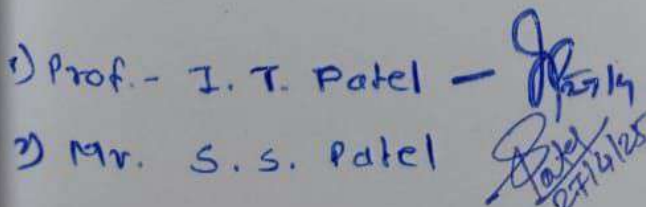 1) Prof. - I. T. Patel - 27/4
2) Mr. S. S. Patel Patel
27/4/25